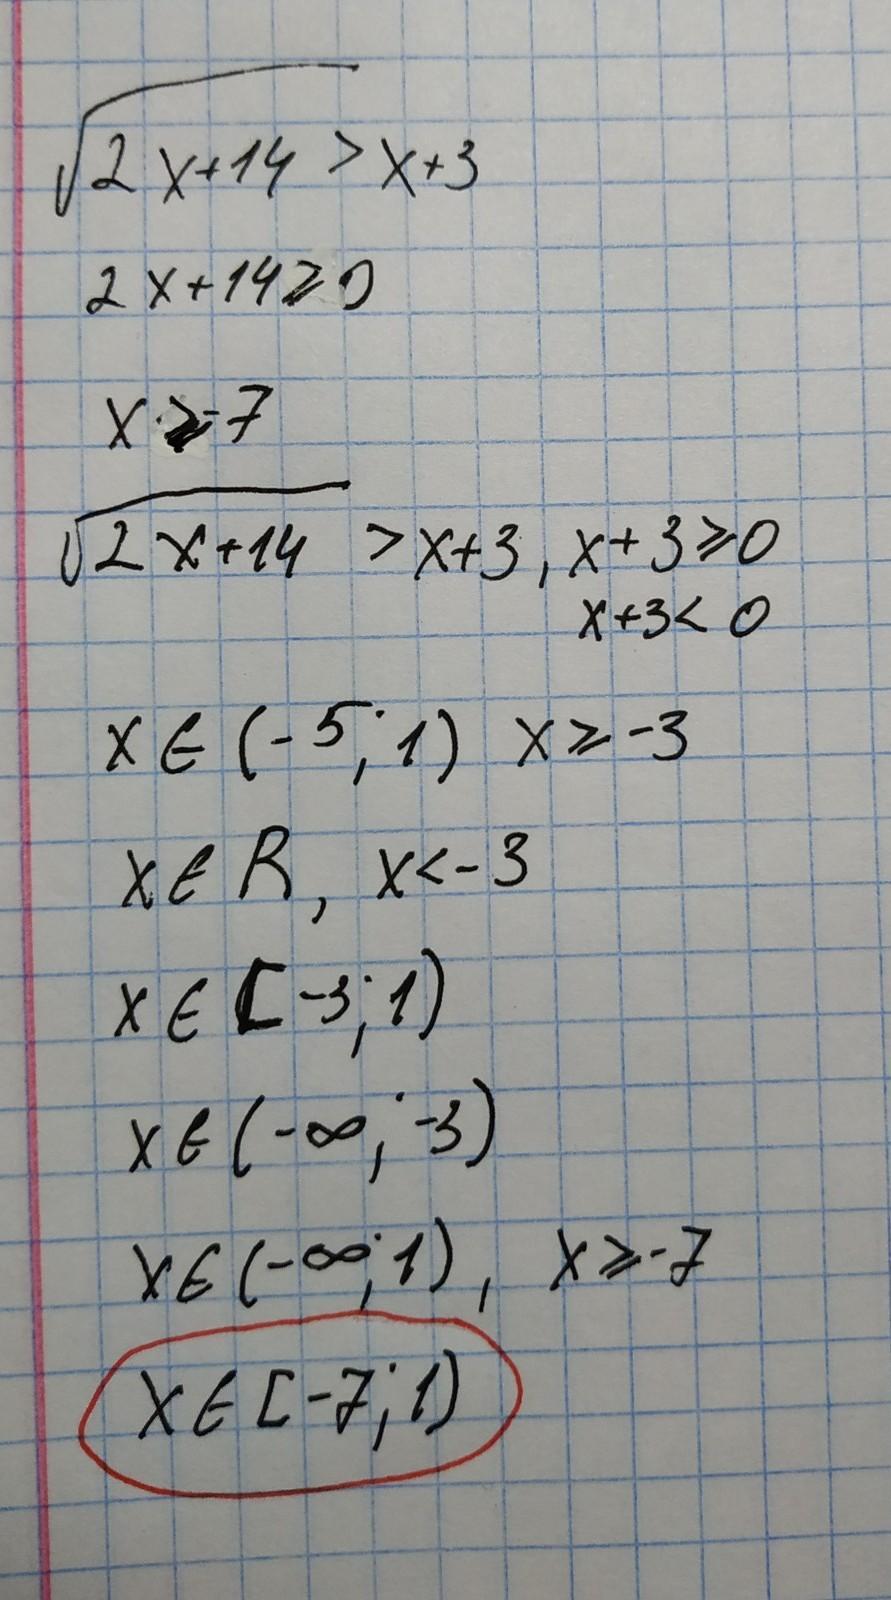 √2x+14 > x+3
2x+14≥0
x≥-7
√2x+14 > x+3, x+3≥0
x+3<0
x∈(-5;1) x≥-3
x∈R, x<-3
x∈[-3;1)
x∈(-∞;-3)
x∈(-∞;1), x≥-7
x∈[-7;1)